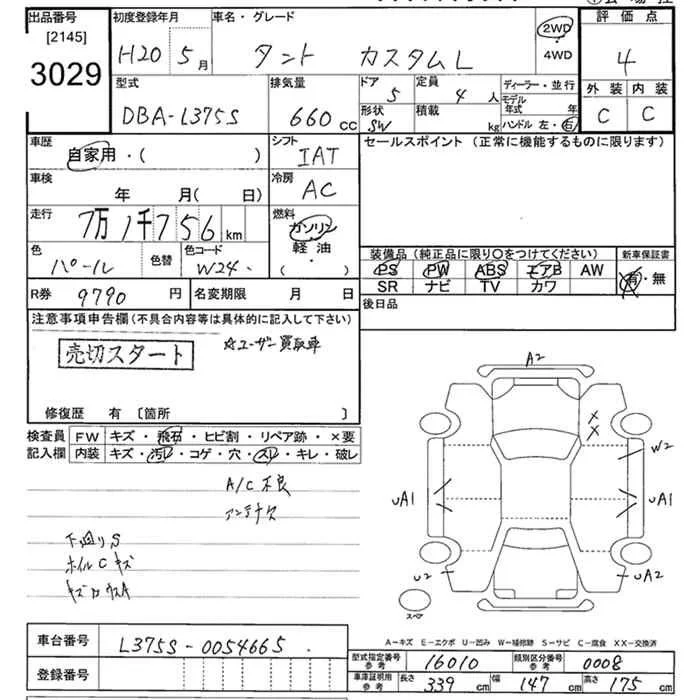 出品番号 初度登録年月 車名・グレード 評価点
[2145]
3029 H20 5月 タント カスタムL 2WD・4WD 4
型式 排気量 ドア 定員 ディーラー・並行 外装 内装
DBA-L375S 660cc 5 4人 モデル年式 年 C C
形状 積載 ハンドル 左・右
SW kg
車歴 シフト セールスポイント（正常に機能するものに限ります）
自家用・( ) IAT
車検 冷房
年 月(日) AC
走行 燃料
7万1千756km ガソリン・軽油
・( )
色 色替 色コード 装備品（純正品に限り○をつけてください） 新車保証書
パール W24 PS PW ABS エアB AW 有・無
SR ナビ TV カワ
R券 9790円 名変期限 月 日 後日品
注意事項申告欄(不具合内容等は具体的に記入して下さい)
売切スタート ☆ユーザー買取車
修復歴 有 [箇所 ]
検査員 FW キズ・飛石・ヒビ割・リペア跡・×要
記入欄 内装 キズ・汚レ・コゲ・穴・スレ・キレ・破レ
A/C不良
アンテナ欠
下回りS
ホイルCキズ
A2
W2
uA1 uA1
u2 uA2
スペア
A-キズ E-エクボ U-凹み W-補修跡 S-サビ C-腐食 XX-交換済
車台番号 L375S-0054665
登録番号
型式指定番号 参考 16010 類別区分番号 参考 0008
車庫証明用 参考 長さ 339cm 幅 147cm 高さ 175cm